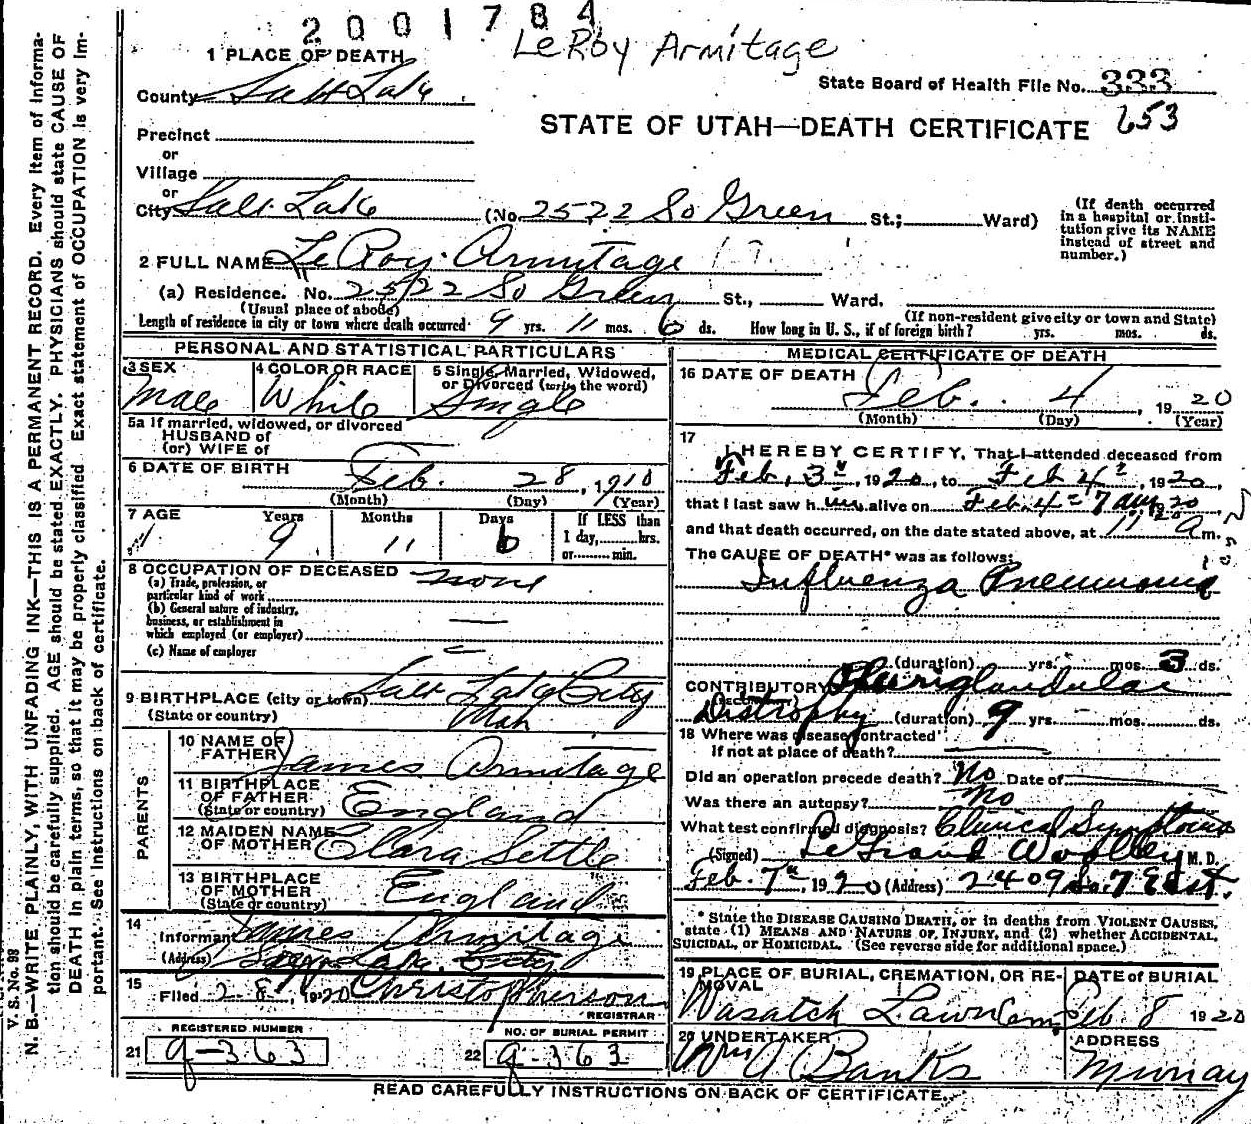 2001784
LeRoy Armitage
1 PLACE OF DEATH
State Board of Health File No. 333
County Salt Lake
653
STATE OF UTAH—DEATH CERTIFICATE
Precinct
or
Village
or
City Salt Lake (No. 2522 So Green St.; Ward)
(If death occurred in a hospital or institution give its NAME instead of street and number.)
2 FULL NAME LeRoy Armitage
(a) Residence. No. 2522 So Green St., Ward.
(Usual place of abode) (If non-resident give city or town and State)
Length of residence in city or town where death occurred 9 yrs. 11 mos. 6 ds. How long in U. S., if of foreign birth? yrs. mos. ds.
PERSONAL AND STATISTICAL PARTICULARS
3 SEX Male
4 COLOR OR RACE White
5 Single, Married, Widowed, or Divorced (write the word) Single
5a If married, widowed, or divorced
HUSBAND of
(or) WIFE of
6 DATE OF BIRTH Feb. 28, 1910
(Month) (Day) (Year)
7 AGE Years Months Days If LESS than
9 11 6 1 day, hrs.
or min.
8 OCCUPATION OF DECEASED none
(a) Trade, profession, or
particular kind of work
(b) General nature of industry,
business, or establishment in
which employed (or employer)
(c) Name of employer
9 BIRTHPLACE (city or town) Salt Lake City
(State or country) Utah
PARENTS
10 NAME OF FATHER James Armitage
11 BIRTHPLACE OF FATHER (State or country) England
12 MAIDEN NAME OF MOTHER Clara Settle
13 BIRTHPLACE OF MOTHER (State or country) England
14
Informant James Armitage
(Address) Salt Lake City
15
Filed 2-8, 1920 Christopherson
REGISTRAR
REGISTERED NUMBER NO. OF BURIAL PERMIT
21 g-363 22 g-363
MEDICAL CERTIFICATE OF DEATH
16 DATE OF DEATH
Feb. 4, 1920
(Month) (Day) (Year)
17
I HEREBY CERTIFY, That I attended deceased from
Feb. 3, 1920, to Feb 4, 1920,
that I last saw him alive on Feb. 4 7 am, 1920
and that death occurred, on the date stated above, at 11 20 a m.
The CAUSE OF DEATH* was as follows:
Influenza Pneumonia
(duration) yrs. mos. 3 ds.
CONTRIBUTORY Pluriglandular
Distrophy (duration) 9 yrs. mos. ds.
18 Where was disease contracted
If not at place of death?
Did an operation precede death? No Date of
Was there an autopsy? No
What test confirmed diagnosis? Clinical Symptoms
(Signed) LeGrand Woolley M. D.
Feb. 7th, 1920 (Address) 2409 So. 7 East.
* State the DISEASE CAUSING DEATH, or in deaths from VIOLENT CAUSES,
state (1) MEANS AND NATURE OF INJURY, and (2) whether ACCIDENTAL,
SUICIDAL, or HOMICIDAL. (See reverse side for additional space.)
19 PLACE OF BURIAL, CREMATION, OR REMOVAL
Wasatch Lawn Cem.
DATE of BURIAL
Feb. 8 1920
20 UNDERTAKER
Wm J Banks
ADDRESS
Murray
READ CAREFULLY INSTRUCTIONS ON BACK OF CERTIFICATE.
V. S. No. 98
N. B.—WRITE PLAINLY, WITH UNFADING INK—THIS IS A PERMANENT RECORD. Every item of information
should be carefully supplied. AGE should be stated EXACTLY. PHYSICIANS should state CAUSE OF
DEATH in plain terms, so that it may be properly classified. Exact statement of OCCUPATION is very important.
See instructions on back of certificate.